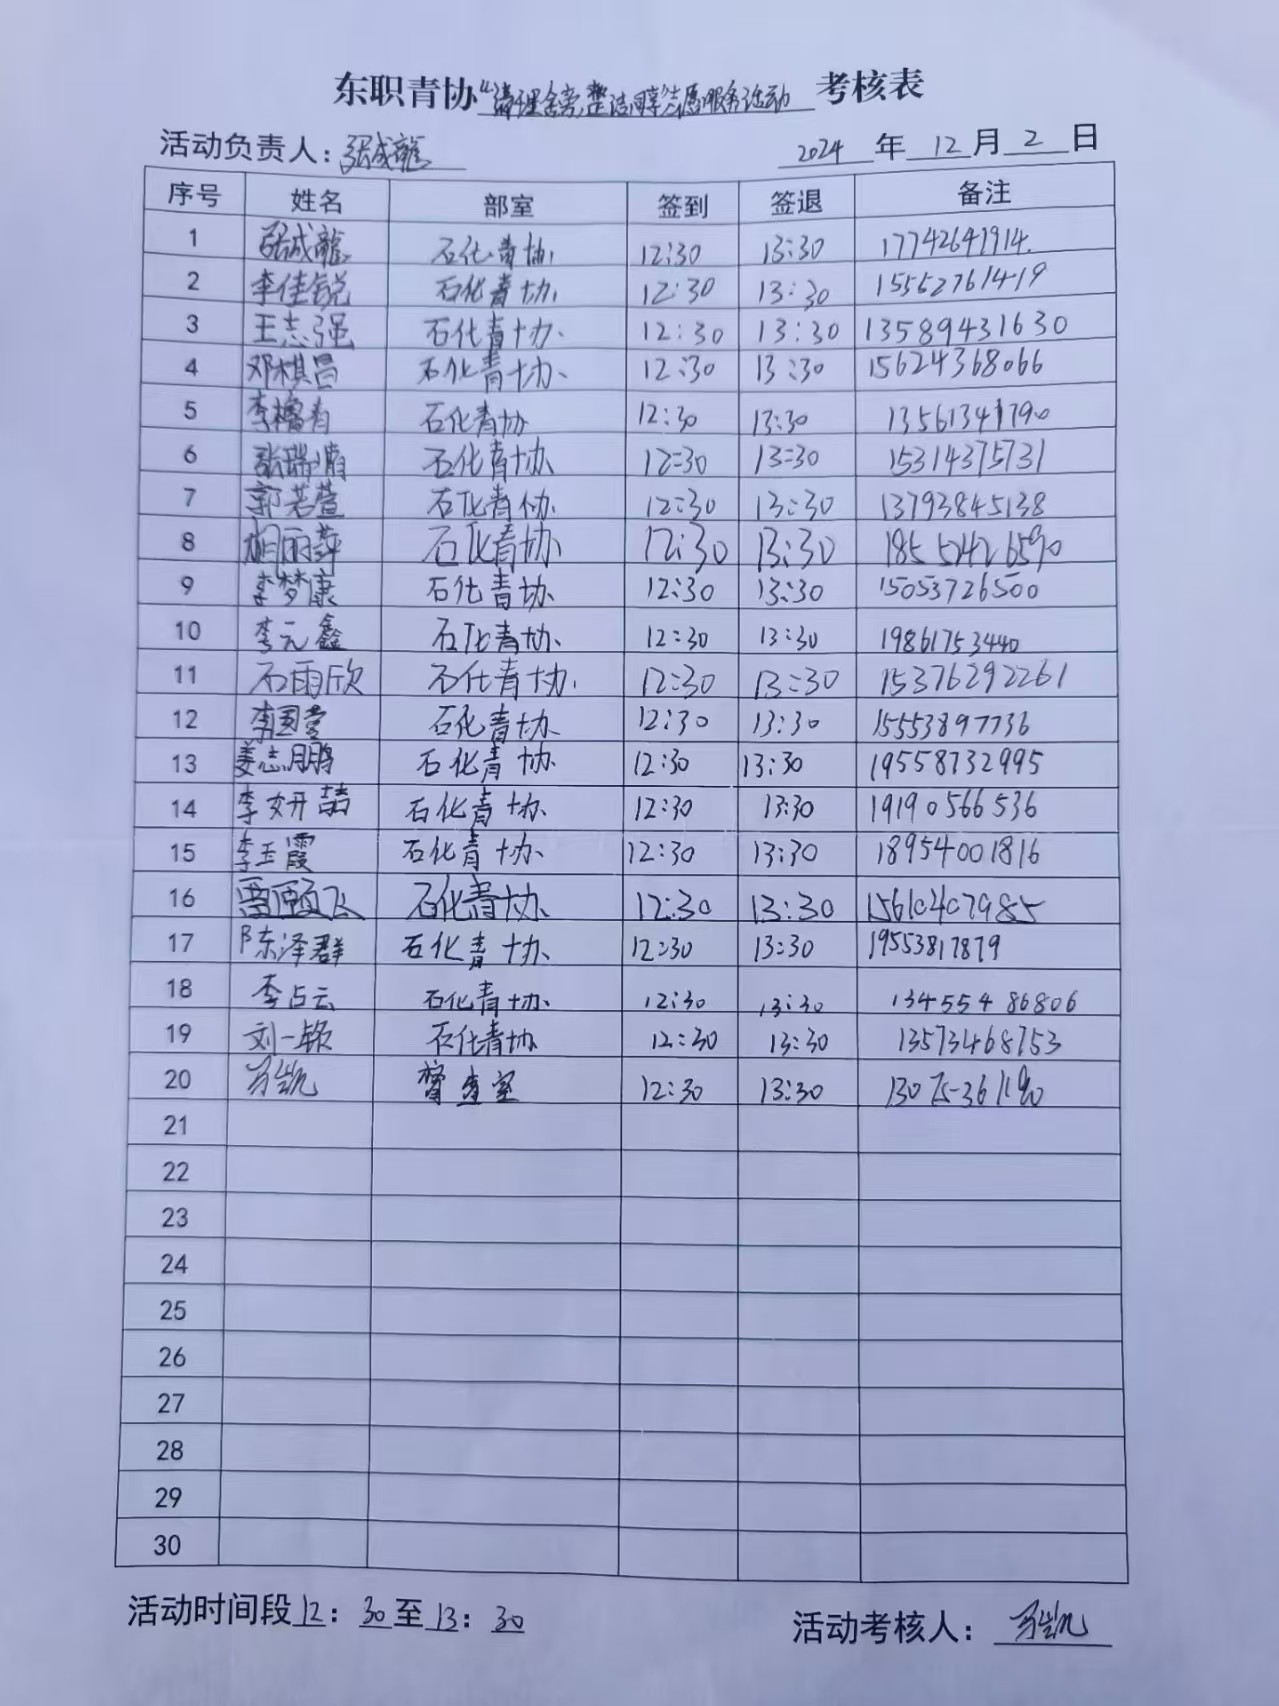 东职青协“清理舍旁,整洁同享”志愿服务活动 考核表
活动负责人: 张成龍 2024 年 12 月 2 日
序号 姓名 部室 签到 签退 备注
1 张成龍 石化青协 12:30 13:30 17742641914.
2 李佳锐 石化青协. 12:30 13:30 15562761419
3 王志强 石化青协. 12:30 13:30 13589431630
4 邓棋昌 石化青协. 12:30 13:30 15624368066
5 石化青协 12:30 13:30 13561341790
6 张瑞 石化青协 12:30 13:30 15314375731
7 郭若萱 石化青协. 12:30 13:30 13793845138
8 胡丽萍 石化青协 12:30 13:30
9 李梦康 石化青协. 12:30 13:30 15053726500
10 李元鑫 石化青协. 12:30 13:30 19861753440
11 石雨欣 石化青协. 12:30 13:30 15376292261
12 李国 石化青协. 12:30 13:30 15553897736
13 姜志鹏 石化青协. 12:30 13:30 19558732995
14 李妍喆 石化青协. 12:30 13:30 19190566536
15 李玉霞 石化青协. 12:30 13:30 18954001816
16 贾颐飞 石化青协. 12:30 13:30 15610407985
17 陈泽群 石化青协. 12:30 13:30 19553817879
18 李占云 石化青协. 12:30 13:30 13455486806
19 刘一颖 石化青协 12:30 13:30 13573468753
20 万凯 督查室 12:30 13:30 13075361190
21
22
23
24
25
26
27
28
29
30
活动时间段 12: 30 至 13: 30 活动考核人: 万凯